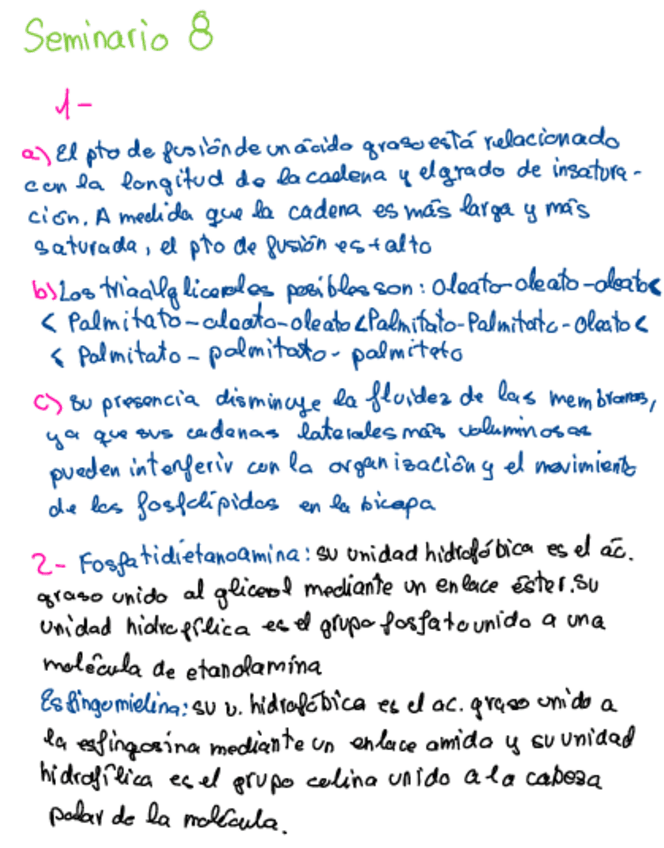 Seminario 8
1-
a) El pto de fusión de un ácido graso está relacionado
con la longitud de la cadena y el grado de insatura-
ción. A medida que la cadena es más larga y más
saturada, el pto de fusión es + alto
b) Los triacilgliceroles posibles son: Oleato-oleato-oleato<
< Palmitato-oleato-oleato<Palmitato-Palmitato-Oleato<
< Palmitato-palmitato-palmitato
c) Su presencia disminuye la fluidez de las membranas,
ya que sus cadenas laterales más voluminosas
pueden interferir con la organización y el movimiento
de los fosfolípidos en la bicapa
2- Fosfatidietanoamina: su unidad hidrofóbica es el ác.
graso unido al glicerol mediante un enlace éster. Su
unidad hidrofílica es el grupo fosfato unido a una
molécula de etanolamina
Esfingomielina: su u. hidrofóbica es el ac. graso unido a
la esfingosina mediante un enlace amida y su unidad
hidrofílica es el grupo colina unido a la cabeza
polar de la molécula.